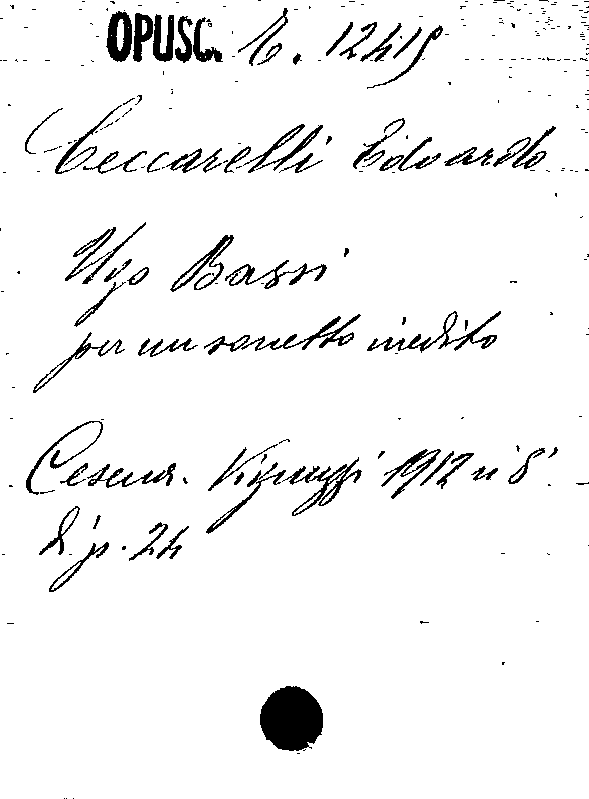 OPUSC. E. 12419
Ceccarelli Edoardo
Ugo Bassi
per un sonetto inedito
Cesena. Vignuzzi 1912 in 8°
di p. 24